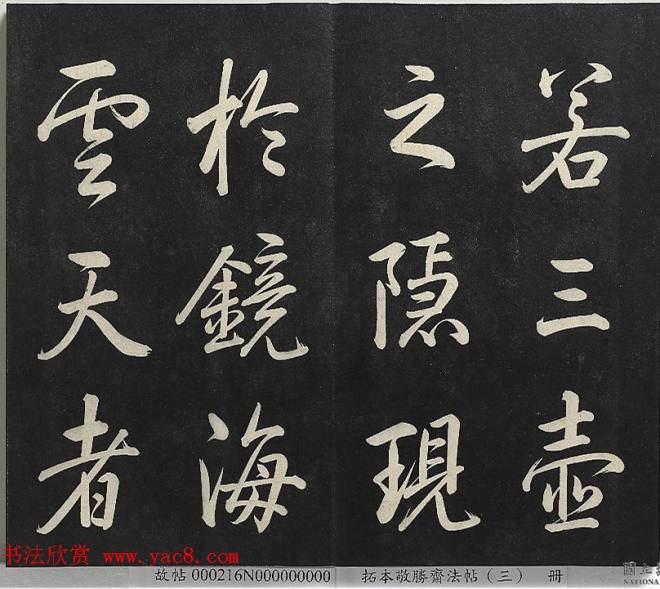 若三壺
之隱現
於鏡海
雲天者
书法欣赏 www.yac8.com
故帖 000216N000000000 拓本敬勝齋法帖（三） 冊